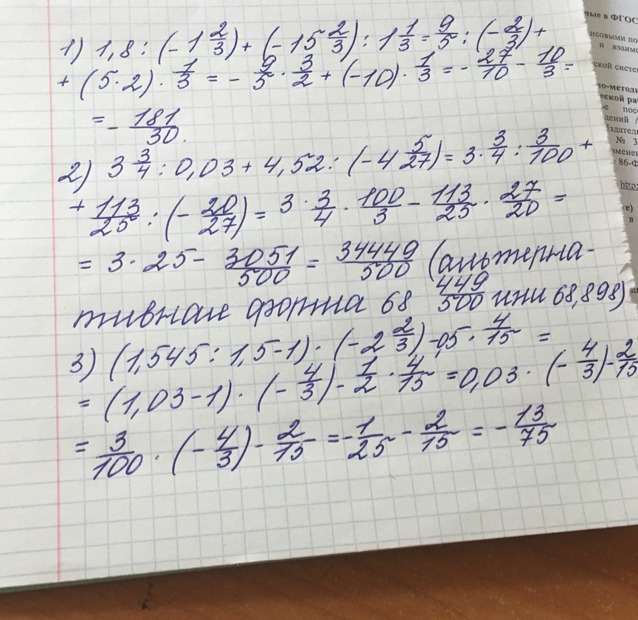 1) 1,8 : (-1 2/3) + (-15 2/3) : 1 1/3 = 9/5 : (-2/3) +
+ (5·2) · 1/3 = - 9/5 · 3/2 + (-10) · 1/3 = - 27/10 - 10/3 =
= - 181/30.
2) 3 3/4 : 0,03 + 4,52 : (-4 5/27) = 3 · 3/4 : 3/100 +
+ 113/25 : (- 20/27) = 3 · 3/4 · 100/3 - 113/25 · 27/20 =
= 3 · 25 - 3051/500 = 34449/500 (альтерна-
тивная форма 68 449/500 или 68,898)
3) (1,545 : 1,5 - 1) · (-2 2/3) - 0,5 · 4/15 =
= (1,03 - 1) · (- 4/3) - 1/2 · 4/15 = 0,03 · (- 4/3) - 2/15
= 3/100 · (- 4/3) - 2/15 = - 1/25 - 2/15 = - 13/75
ные в ФГОС
и взаимо
ской систем
но-метод
ческой ра